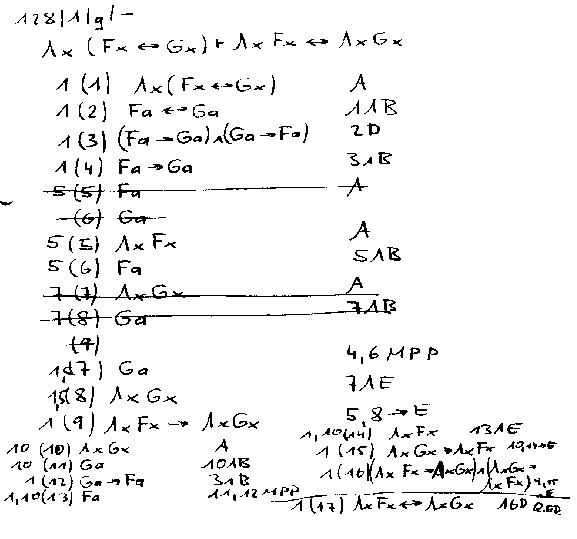 128|1|g| –
Λx (Fx ↔ Gx) ⊢ Λx Fx ↔ Λx Gx
1 (1) Λx (Fx ↔ Gx) A
1 (2) Fa ↔ Ga 1ΛB
1 (3) (Fa → Ga) ∧ (Ga → Fa) 2D
1 (4) Fa → Ga 3ΛB
5 (5) Fa A
(6) Ga
5 (5) Λx Fx A
5 (6) Fa 5ΛB
7 (7) Λx Gx A
7 (8) Ga 7ΛB
(9)
1,5 (7) Ga 4,6 MPP
1,5 (8) Λx Gx 7ΛE
1 (9) Λx Fx → Λx Gx 5,8 → E
10 (10) Λx Gx A
10 (11) Ga 10ΛB
1 (12) Ga → Fa 3ΛB
1,10 (13) Fa 11,12 MPP
1,10 (14) Λx Fx 13ΛE
1 (15) Λx Gx → Λx Fx 10,14 → E
1 (16) (Λx Fx → Λx Gx) ∧ (Λx Gx → Λx Fx) 9,15 ∧E
1 (17) Λx Fx ↔ Λx Gx 16D Q.E.D.